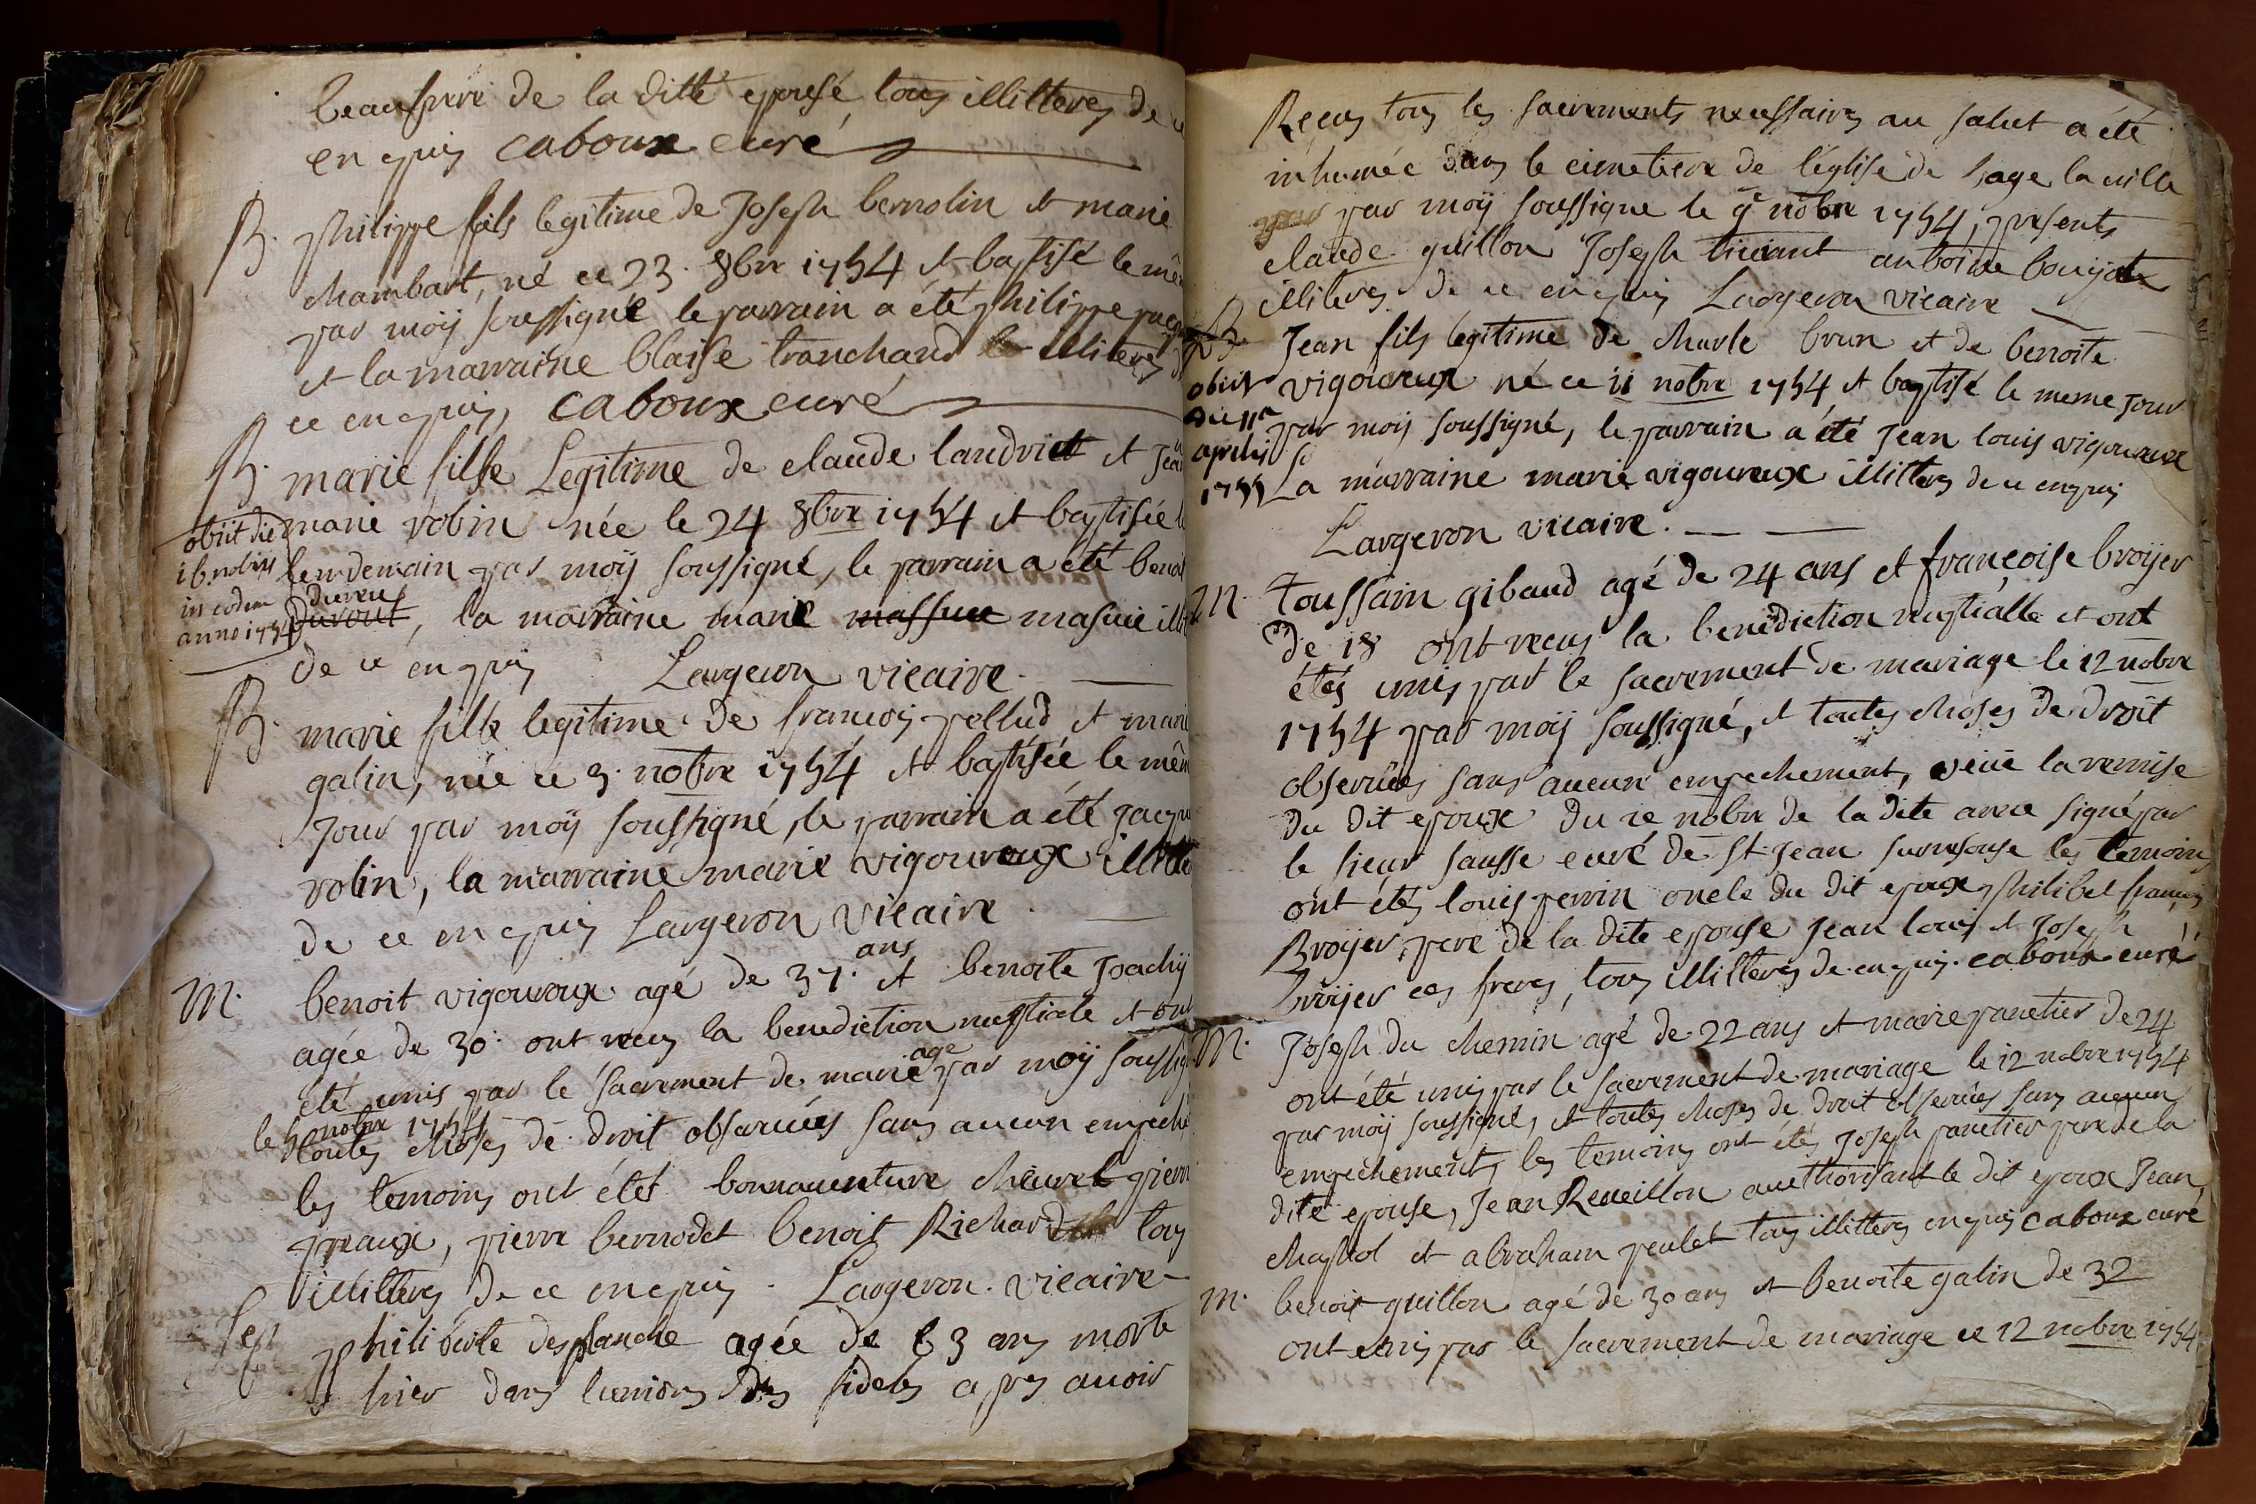 beaufrere de la ditte epouse tous illitteres de ce
en quis caboux curé
B. philippe fils legitime de Joseph bernolin et marie
chambart, né ce 23. 8bre 1754 et baptisé le mê
par moÿ soussigné le parrain a été philippe
et la marraine blaise tranchand illiteres
ce en quis, caboux curé
B. marie fille Legitime de claude laudriet et Jea
marie robin née le 24 8bre 1754 et baptisée le
lendemain par moÿ soussigné, le parrain a été benoit
dureu
durout, la marraine marie massuie masuie illi
obiit die
16 nobris
in eodem
anno 1754
de ce en quis Largeron vicaire.
B. marie fille legitime de francois pellud et marie
galin, née ce 3. nobre 1754 et baptisée le mêm
Jour par moÿ soussigné, le parrain a été Jacque
robin, la marraine marie vigouroux illitte
de ce en quis Largeron vicaire.
M. benoit vigouroux agé de 37. ans et benoite Joachÿ
agée de 30. ont recus la benediction nuptiale et ont
été unis par le sacrement de mariage par moÿ soussig
le 5 nobre 1754
toutes choses de droit observées sans aucun empeche
les temoins ont étés bonnaventure chevret pierre
preaux, pierre bernodet benoit Richard tous
illitterés de ce en quis. Largeron. vicaire
Sep philiberte desplanche agée de 63 ans morte
hier dans lunion des fideles apres avoir
Recus tous les sacrements necessaires au salut a été
inhumée dans le cimetiere de léglise de hage la ville
par moÿ soussigne le 9e nobre 1754, presents
claude guillon Joseph tivant antoine boujat
illiteres de ce en quis Largeron vicaire
B. Jean fils legitime de charle brun et de benoite
vigoureux né ce 11 nobre 1754 et baptisé le meme Jour
par moÿ soussigné, le parrain a été Jean louis vigoureux
La marraine marie vigoureux illitteres de ce enquis
obiit
die 11a
aprilis
1755
Largeron vicaire.
M. toussain gibaud agé de 24 ans et françoise broÿer
de 18 ont recus la benediction nuptialle et ont
étés unis par le sacrement de mariage le 12 nobre
1754 par moÿ soussigné, et toutes choses de droit
observées sans aucun empechement, veüe la remise
du dit epoux du 10 nobre de la dite année signé par
le sieur sausse curé de st Jean surresouse les temoins
ont étés louis perrin oncle du dit epoux, philibet francois
Broÿer pere de la dite epouse Jean louis et Joseph
broÿer ces freres, tous illitterés de. enquis. caboux curé
M. Joseph du chemin agé de 22 ans et marie panetier de 24
ont été unis par le sacrement de mariage le 12 nobre 1754
par moÿ soussigné, et toutes choses de droit observées sans aucun
empechement, les temoins ont étés Joseph panetier pere de la
dite epouse, Jean Reveillon aucthorisant le dit epoux Jean
chapuol et abraham peulet tous illitteres enquis caboux curé
M. benoit guillon agé de 30 ans et benoite galin de 32
ont unis par le sacrement de mariage ce 12 nobre 1754